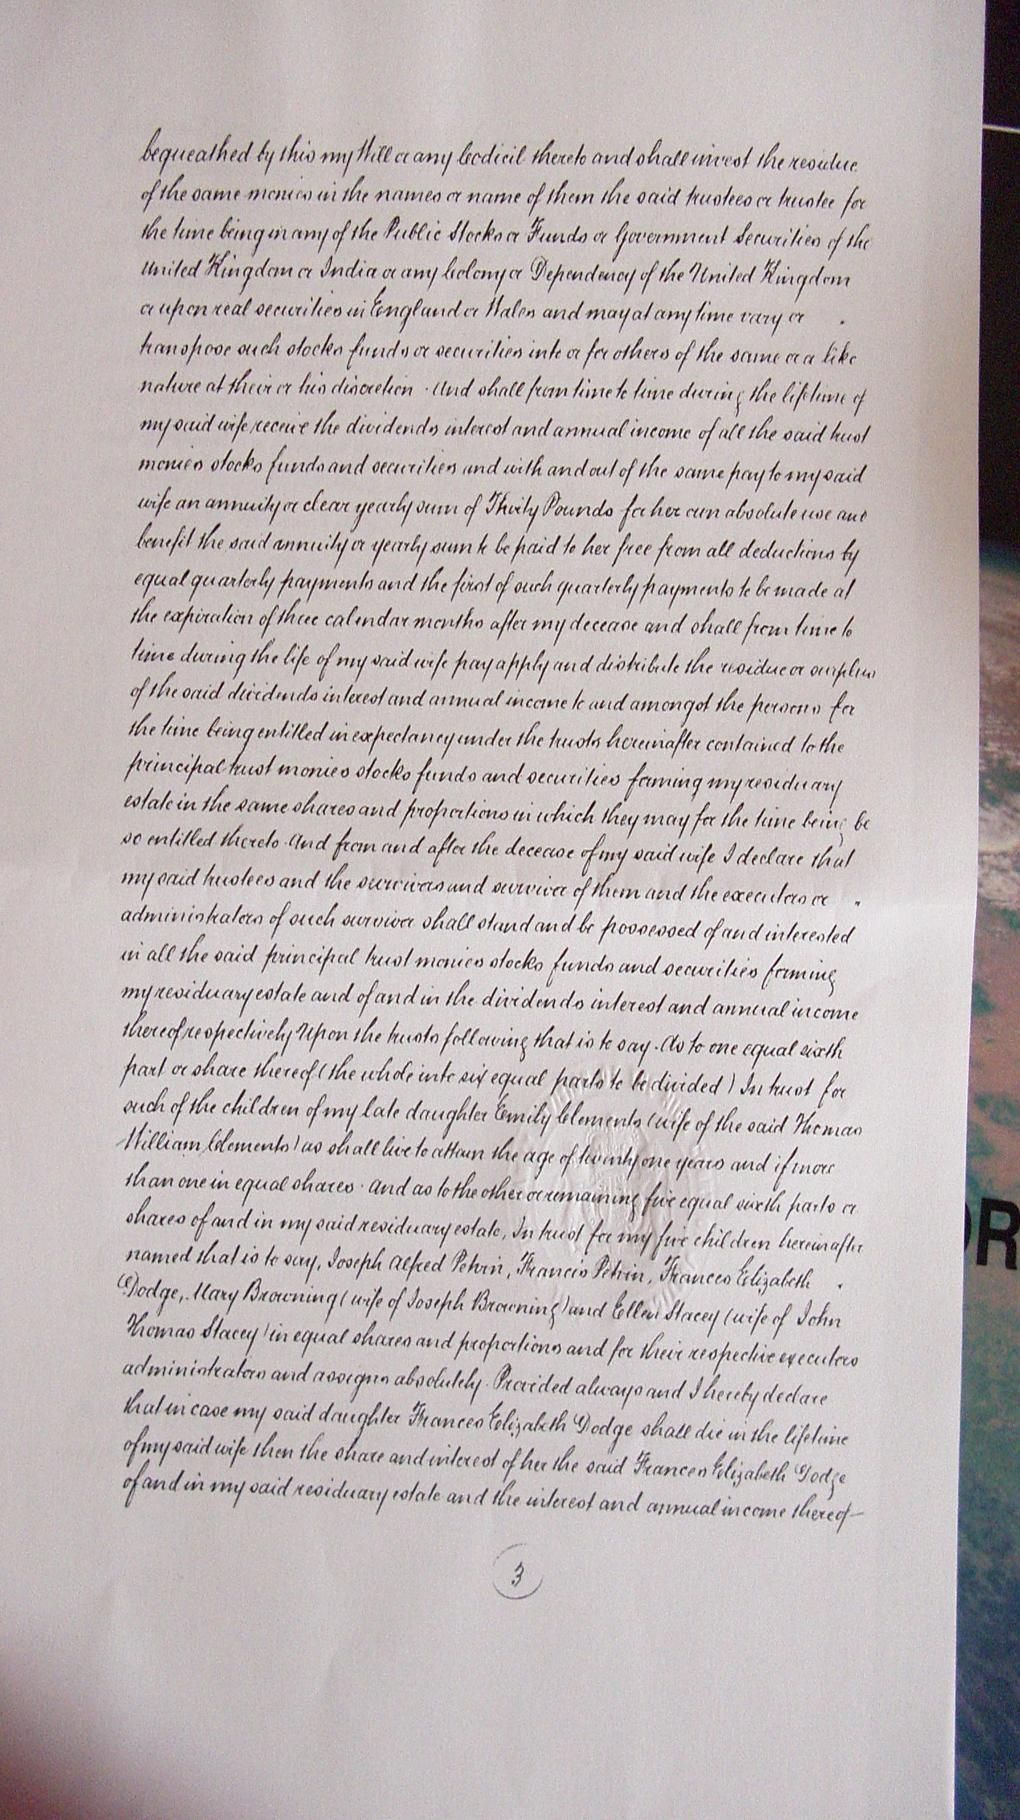 bequeathed by this my Will or any Codicil thereto and shall invest the residue
of the same monies in the names or name of them the said trustees or trustee for
the time being in any of the Public Stocks or Funds or Government Securities of the
United Kingdom or India or any Colony or Dependency of the United Kingdom
or upon real securities in England or Wales and may at any time vary or
transpose such stocks funds or securities into or for others of the same or a like
nature at their or his discretion. And shall from time to time during the lifetime of
my said wife receive the dividends interest and annual income of all the said trust
monies stocks funds and securities and with and out of the same pay to my said
wife an annuity or clear yearly sum of Thirty Pounds for her own absolute use and
benefit the said annuity or yearly sum to be paid to her free from all deductions by
equal quarterly payments and the first of such quarterly payments to be made at
the expiration of three calendar months after my decease and shall from time to
time during the life of my said wife pay apply and distribute the residue or surplus
of the said dividends interest and annual income to and amongst the persons for
the time being entitled in expectancy under the trusts hereinafter contained to the
principal trust monies stocks funds and securities forming my residuary
estate in the same shares and proportions in which they may for the time being be
so entitled thereto. And from and after the decease of my said wife I declare that
my said trustees and the survivors and survivor of them and the executors or
administrators of such survivor shall stand and be possessed of and interested
in all the said principal trust monies stocks funds and securities forming
my residuary estate and of and in the dividends interest and annual income
thereof respectively Upon the trusts following that is to say. As to one equal sixth
part or share thereof (the whole into six equal parts to be divided) In trust for
such of the children of my late daughter Emily Clements (wife of the said Thomas
William Clements) as shall live to attain the age of twenty one years and if more
than one in equal shares. And as to the other or remaining five equal sixth parts or
shares of and in my said residuary estate, In trust for my five children hereinafter
named that is to say, Joseph Alfred Petvin, Francis Petvin, Frances Elizabeth
Dodge, Mary Browning (wife of Joseph Browning) and Ellen Stacey (wife of John
Thomas Stacey) in equal shares and proportions and for their respective executors
administrators and assigns absolutely. Provided always and I hereby declare
that in case my said daughter Frances Elizabeth Dodge shall die in the lifetime
of my said wife then the share and interest of her the said Frances Elizabeth Dodge
of and in my said residuary estate and the interest and annual income thereof
3
OR